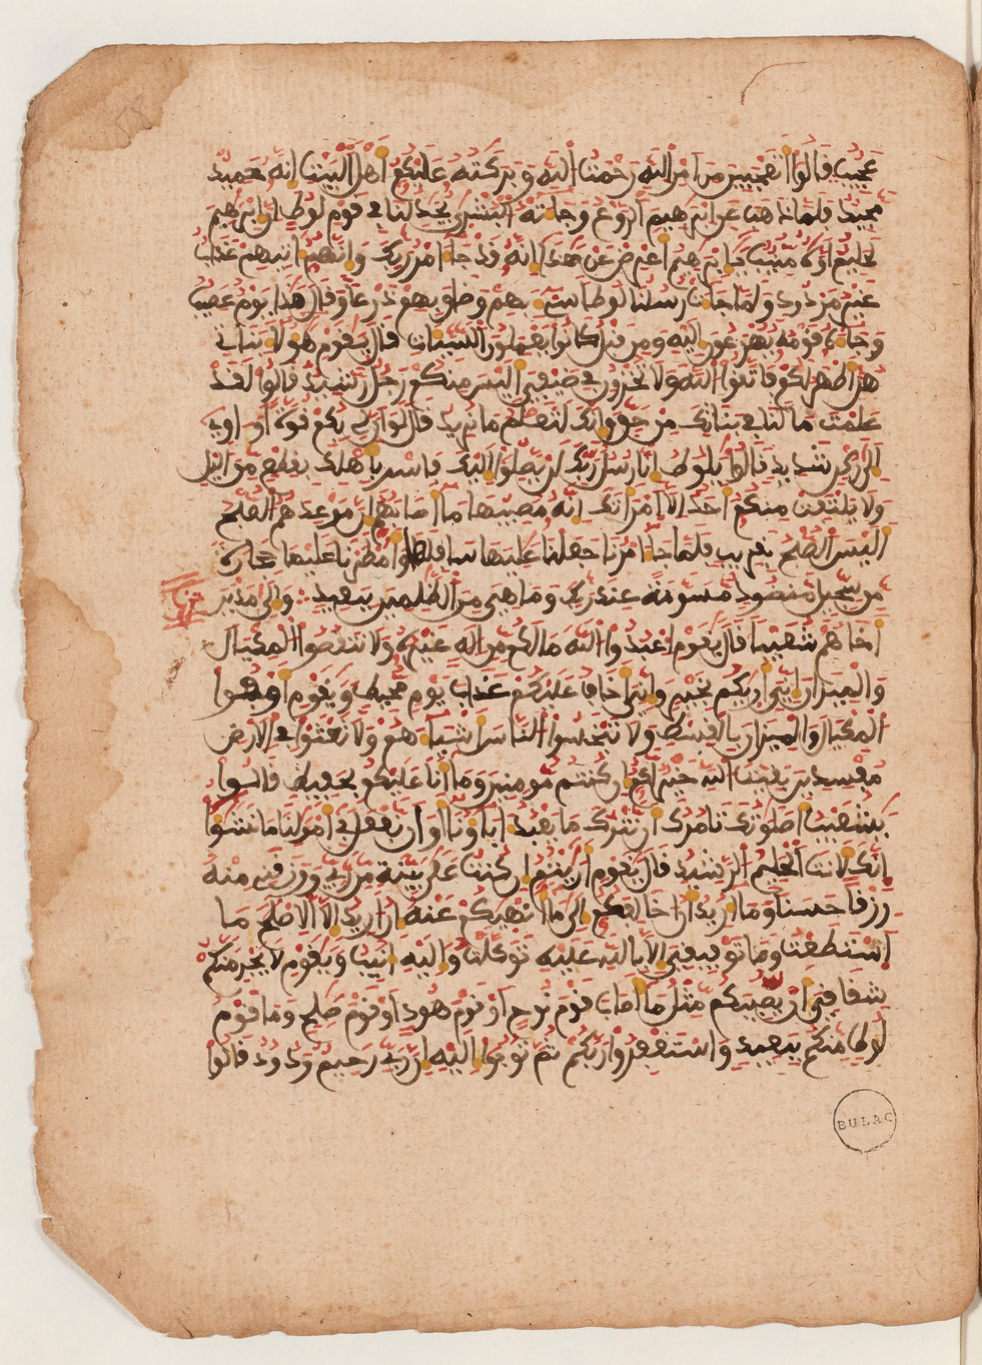 58
عجيب قالوا أتعجبين من امر الله رحمت الله وبركته عليكم اهل البيت انه حميد
مجيد فلما ذهب عن ابرهيم الروع وجاءته البشرى يجدلنا في قوم لوط ان ابرهيم
لحليم اوه منيب يابرهيم اعرض عن هذا انه قد جا امر ربك وانهم اتيهم عذاب
غير مردود ولما جات رسلنا لوطا سيء بهم وضاق بهم ذرعا وقال هذا يوم عصيب
وجاءه قومه يهرعون اليه ومن قبل كانوا يعملون السيئات قال يقوم هولا بناتي
هن اطهر لكم فاتقوا الله ولا تخزون في ضيفي اليس منكم رجل رشيد قالوا لقد
علمت ما لنا في بناتك من حق وانك لتعلم ما نريد قال لو ان لي بكم قوة او اوي
الى ركن شديد قالوا يلوط انا رسل ربك لن يصلوا اليك فاسر باهلك بقطع من اليل
ولا يلتفت منكم احد الا امراتك انه مصيبها ما اصابهم ان موعدهم الصبح
اليس الصبح بقريب فلما جا امرنا جعلنا عليها سافلها وامطرنا عليها حجارة
من سجيل منضود مسومة عند ربك وما هي من الظلمين ببعيد والى مدين
حزب
اخاهم شعيبا قال يقوم اعبدوا الله ما لكم من اله غيره ولا تنقصوا المكيال
والميزان اني اريكم بخير واني اخاف عليكم عذاب يوم محيط ويقوم اوفوا
المكيال والميزان بالقسط ولا تبخسوا الناس اشياءهم ولا تعثوا في الارض
مفسدين بقيت الله خير لكم ان كنتم مومنين وما انا عليكم بحفيظ قالوا
يشعيب اصلوتك تامرك ان نترك ما يعبد اباؤنا او ان نفعل في امولنا ما نشوا
انك لانت الحليم الرشيد قال يقوم اريتم ان كنت على بينة من ربي ورزقني منه
رزقا حسنا وما اريد ان اخالفكم الى ما انهيكم عنه ان اريد الا الاصلح ما
استطعت وما توفيقي الا بالله عليه توكلت واليه انيب ويقوم لا يجرمنكم
شقاقي ان يصيبكم مثل ما اصاب قوم نوح او قوم هود او قوم صلح وما قوم
لوط منكم ببعيد واستغفروا ربكم ثم توبوا اليه ان ربي رحيم ودود قالوا
BULAC